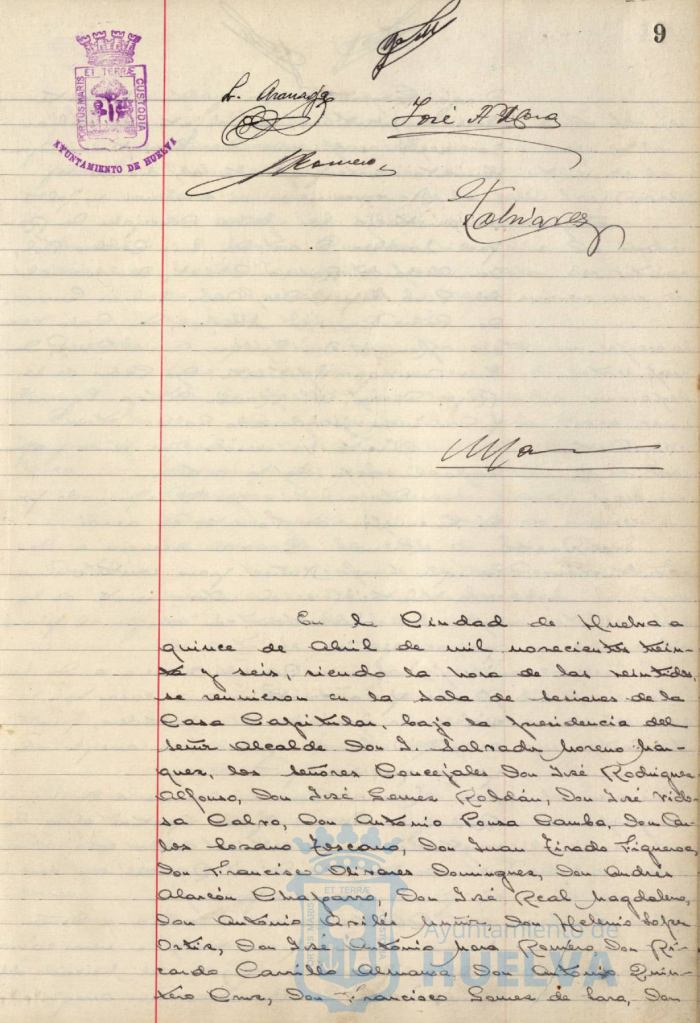 9
PORTUS MARIS ET TERRÆ CUSTODIA
AYUNTAMIENTO DE HUELVA
José A Mora
Romero
Olivares
En la Ciudad de Huelva a
quince de Abril de mil novecientos trein-
ta y seis, siendo la hora de las veintidos,
se reunieron en la sala de sesiones de la
Casa Capitular, bajo la presidencia del
señor Alcalde Don J. Salvador Moreno Már-
quez, los señores Concejales Don José Rodriguez
Alfonso, Don José Gomez Roldán, Don José Vides-
sa Calvo, Don Antonio Ponsa Camba, Don Car-
los Lozano Toscano, Don Juan Tirado Figueroa,
Don Francisco Olivares Dominguez, Don Andrés
Alarcón Chaparro, Don José Real Magdaleno,
Don Antonio Avilés Muñiz, Don Helenio Lopez
Ortiz, Don José Antonio Mora Romero, Don Ri-
cardo Carrillo Almansa, Don Antonio Quin-
tero Cruz, Don Francisco Gomez de Lara, Don
Ayuntamiento de
HUELVA